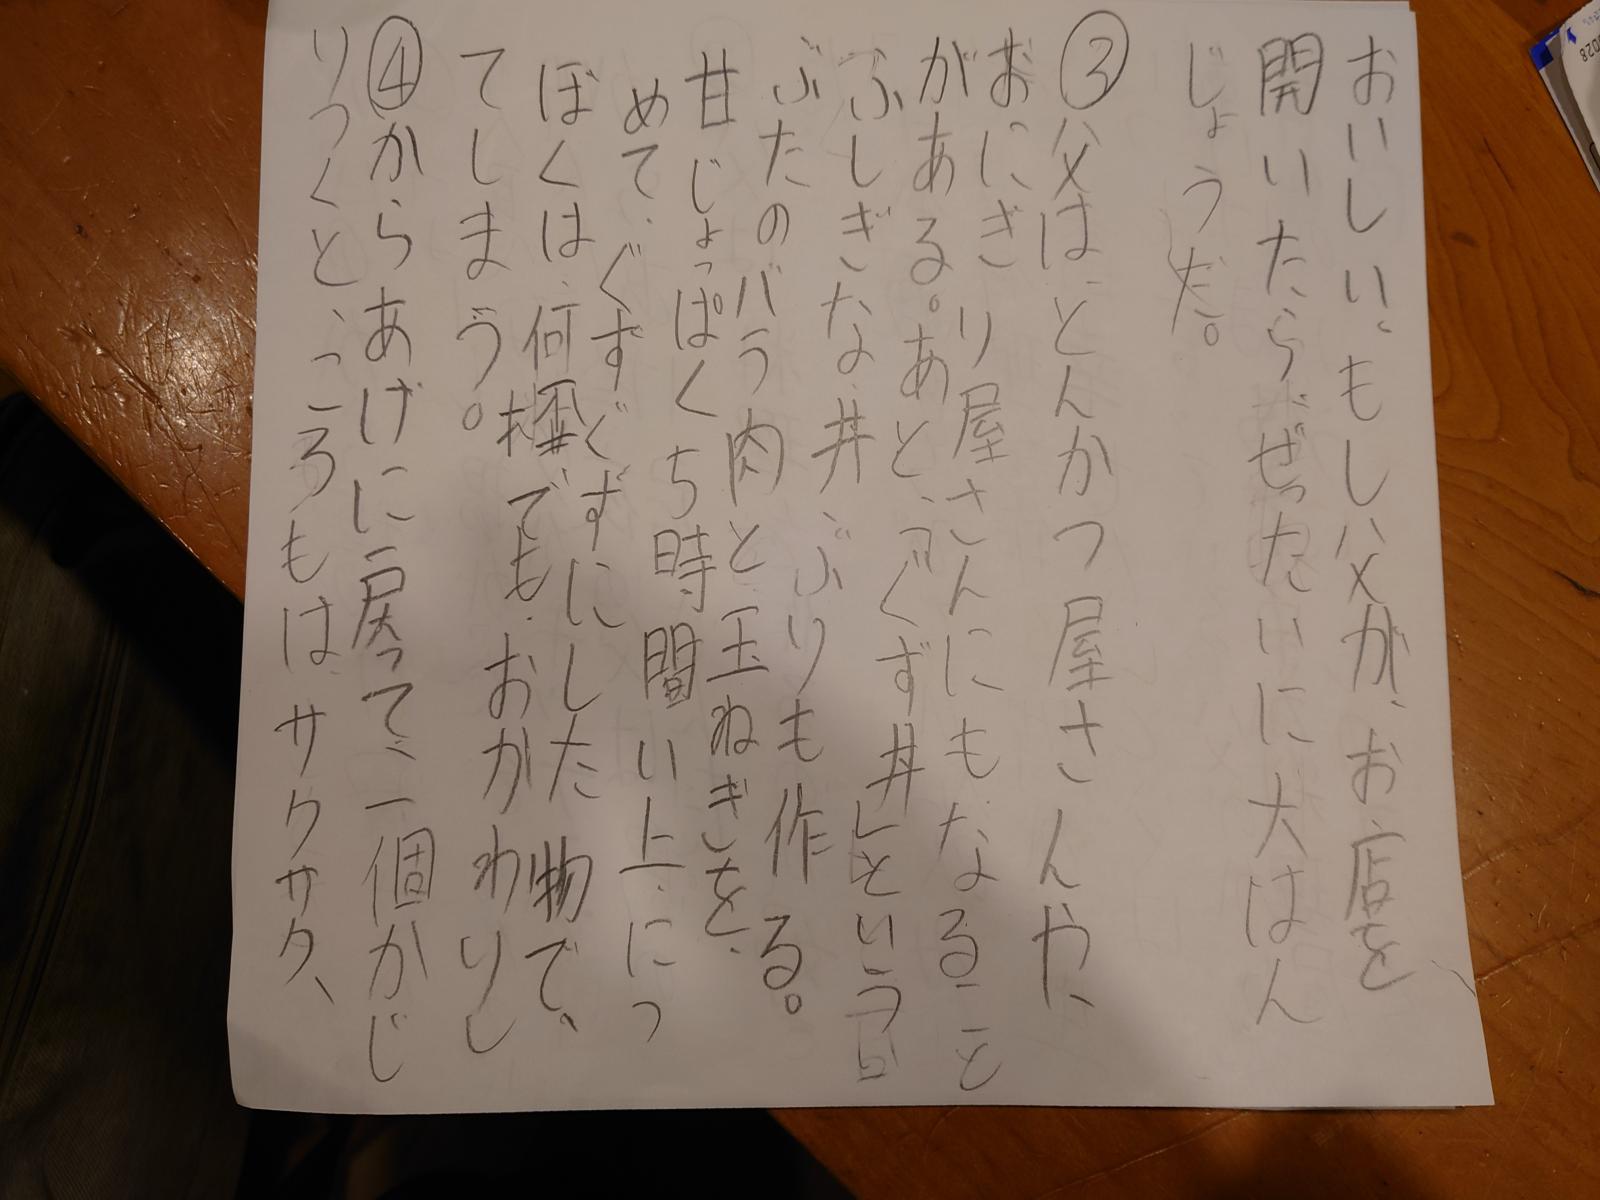 おいしい。もし父が、お店を
開いたらぜったいに大はん
じょうだ。
③父は、とんかつ屋さんや、
おにぎり屋さんにもなること
がある。あと、「ぐず丼」という
ふしぎな丼ぶりも作る。
ぶたのバラ肉と玉ねぎを、
甘じょっぱく5時間い上、につ
めて、ぐずぐずにした物で、
ぼくは、何杯でも、おかわりし
てしまう。
④からあげに戻って、一個かじ
りつくと、ころもは、サクサク、